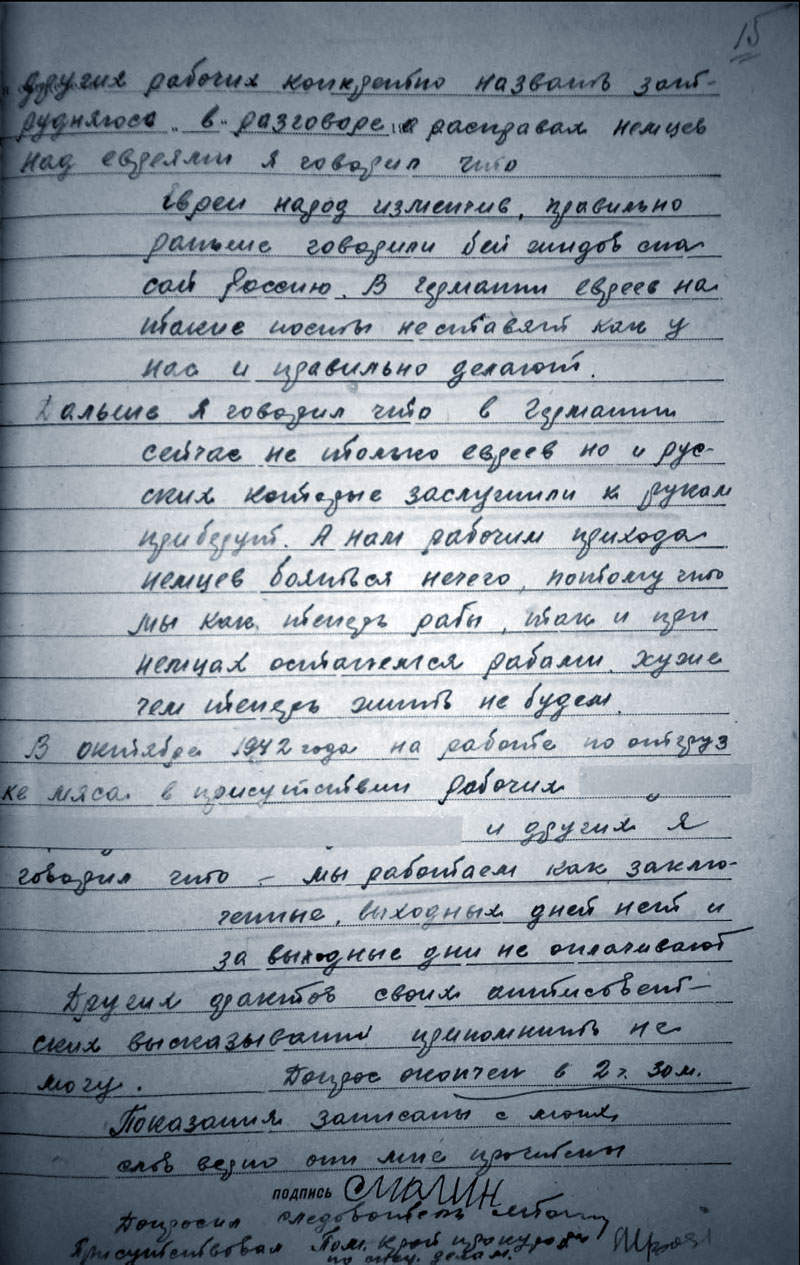 15
других рабочих конкретно назвать зат-
рудняюсь. в разговоре о расправах немцев
над евреями я говорил что
Евреи народ изменчив, правильно
раньше говорили бей жидов спа
сай Россию. В Германии евреев на
такие посты неставят как у
нас и правильно делают.
Дальше я говорил что в Германии
сейчас не только евреев но и рус-
ских которые заслужили к рукам
приберут. А нам рабочим прихода
немцев бояться нечего, потому что
мы как теперь рабы, так и при
немцах останемся рабами. хуже
чем теперь жить не будем.
В октябре 1942 года на работе по отгруз
ке мяса в присутствии рабочих
и других я
говорил что – мы работаем как заклю-
ченные, выходных дней нет и
за выходные дни не оплачивают
Других фактов своих антисовет-
ских высказываний припомнить не
могу. Допрос окончен в 2 ч. 30 м.
Показания записаны с моих
слов верно они мне прочитаны
подпись СМОЛИН
Допросил следователь
Присутствовал Пом. Край прокурора
по спец. делам.